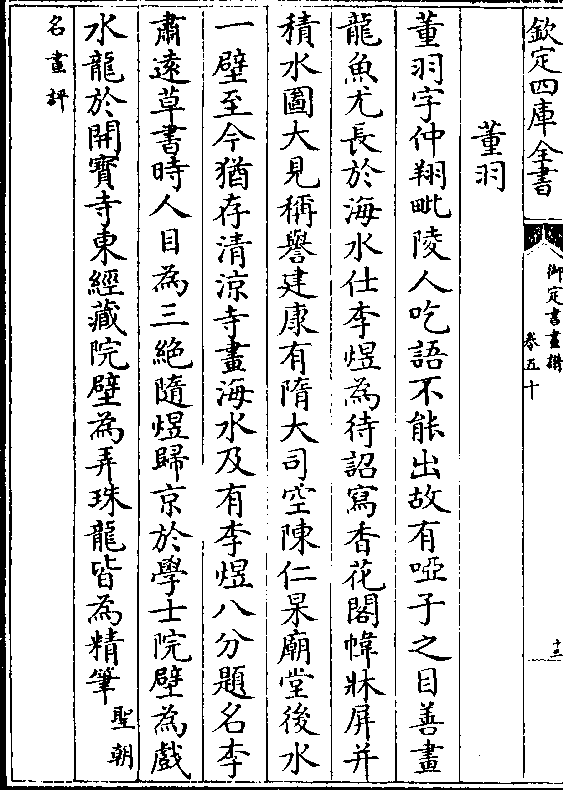 欽定四庫全書
御定書畫譜
卷五十
十三
董羽
董羽字仲翔毗陵人吃語不能出故有啞子之目善畫
龍魚尤長於海水仕李煜為待詔寫香花閣幃牀屏并
積水圖大見稱譽建康有隋大司空陳仁杲廟堂後水
一壁至今猶存清涼寺畫海水及有李煜八分題名李
肅遠草書時人目為三絶隨煜歸京於學士院壁為戲
水龍於開寶寺東經藏院壁為弄珠龍皆為精筆聖朝
名畫評